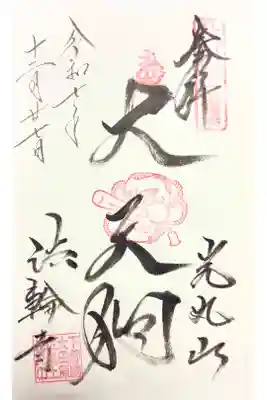 奉拝
光丸山
大天狗
令和七年
十二月廿七日
法輪寺